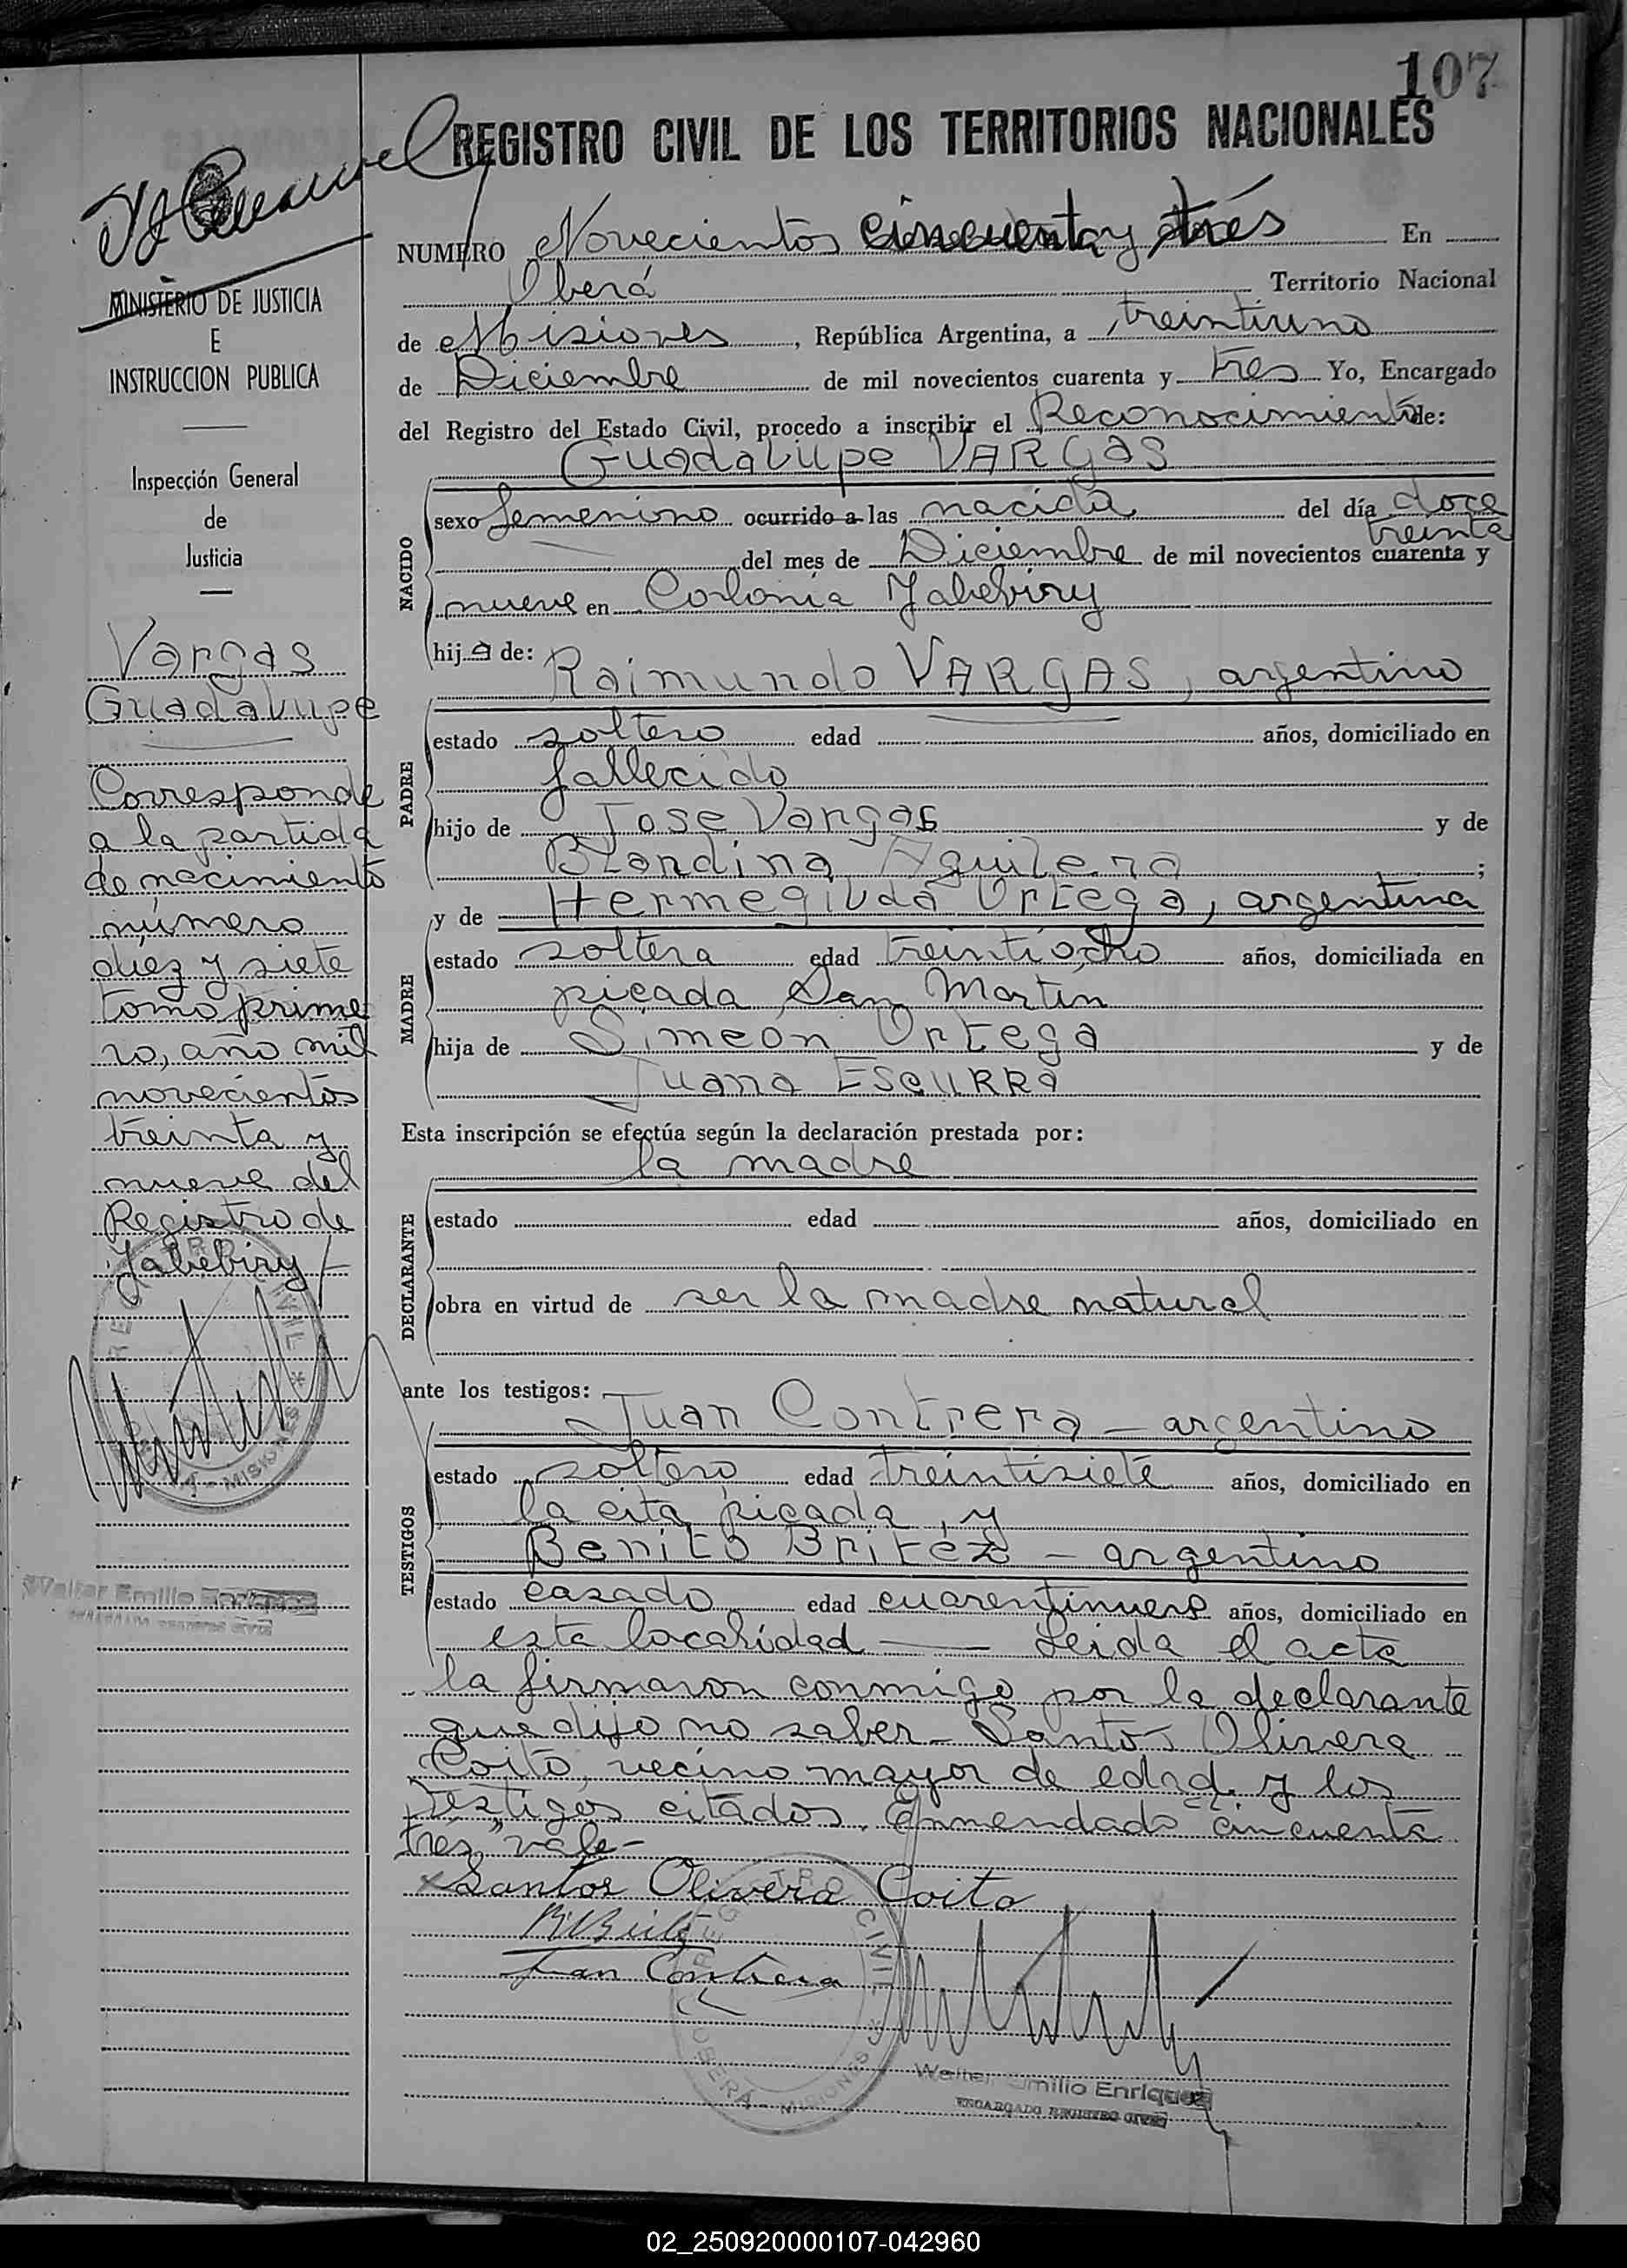 107
REGISTRO CIVIL DE LOS TERRITORIOS NACIONALES
NUMERO Novecientos cincuenta y trés En
Oberá Territorio Nacional
de Misiones, República Argentina, a treintiuno
de Diciembre de mil novecientos cuarenta y tres Yo, Encargado
del Registro del Estado Civil, procedo a inscribir el Reconocimiento de:
Guadalupe VARGAS
NACIDO
sexo femenino ocurrido a las nacida del día doce
treinta
del mes de Diciembre de mil novecientos cuarenta y
nueve en Colonia Yabebiry
hija de:
Raimundo VARGAS, argentino
PADRE
estado soltero edad años, domiciliado en
fallecido
hijo de Jose Vargas y de
Blandina Aguilera;
y de Hermegilda Ortega, argentina
MADRE
estado soltera edad treintiocho años, domiciliada en
picada San Martin
hija de Simeón Ortega y de
Juana ESCURRA
Esta inscripción se efectúa según la declaración prestada por:
la madre
DECLARANTE
estado edad años, domiciliado en
obra en virtud de ser la madre natural
ante los testigos:
Juan Contrera - argentino
TESTIGOS
estado soltero edad treintisiete años, domiciliado en
la cita picada, y
Benito Britez - argentino
estado casado edad cuarentinueve años, domiciliado en
esta localidad — Leida el acta
la firmaron conmigo por la declarante
que dijo no saber - Santos Olivera
Coito, vecino mayor de edad y los
testigos citados. Enmendado "cincuenta
trés" vale-
Santos Olivera Coito
Juan Contrera
REGISTRO CIVIL
OBERA - MISIONES
Walter Emilio Enriquez
ENCARGADO REGISTRO CIVIL
MINISTERIO DE JUSTICIA
E
INSTRUCCION PUBLICA
Inspección General
de
Justicia
Vargas
Guadalupe
Corresponde
a la partida
de nacimiento
número
diez y siete
tomo prime
ro, año mil
novecientos
treinta y
nueve del
Registro de
Yabebiry
REGISTRO CIVIL
MISIONES
Walter Emilio Enriquez
ENCARGADO REGISTRO CIVIL
02_250920000107-042960